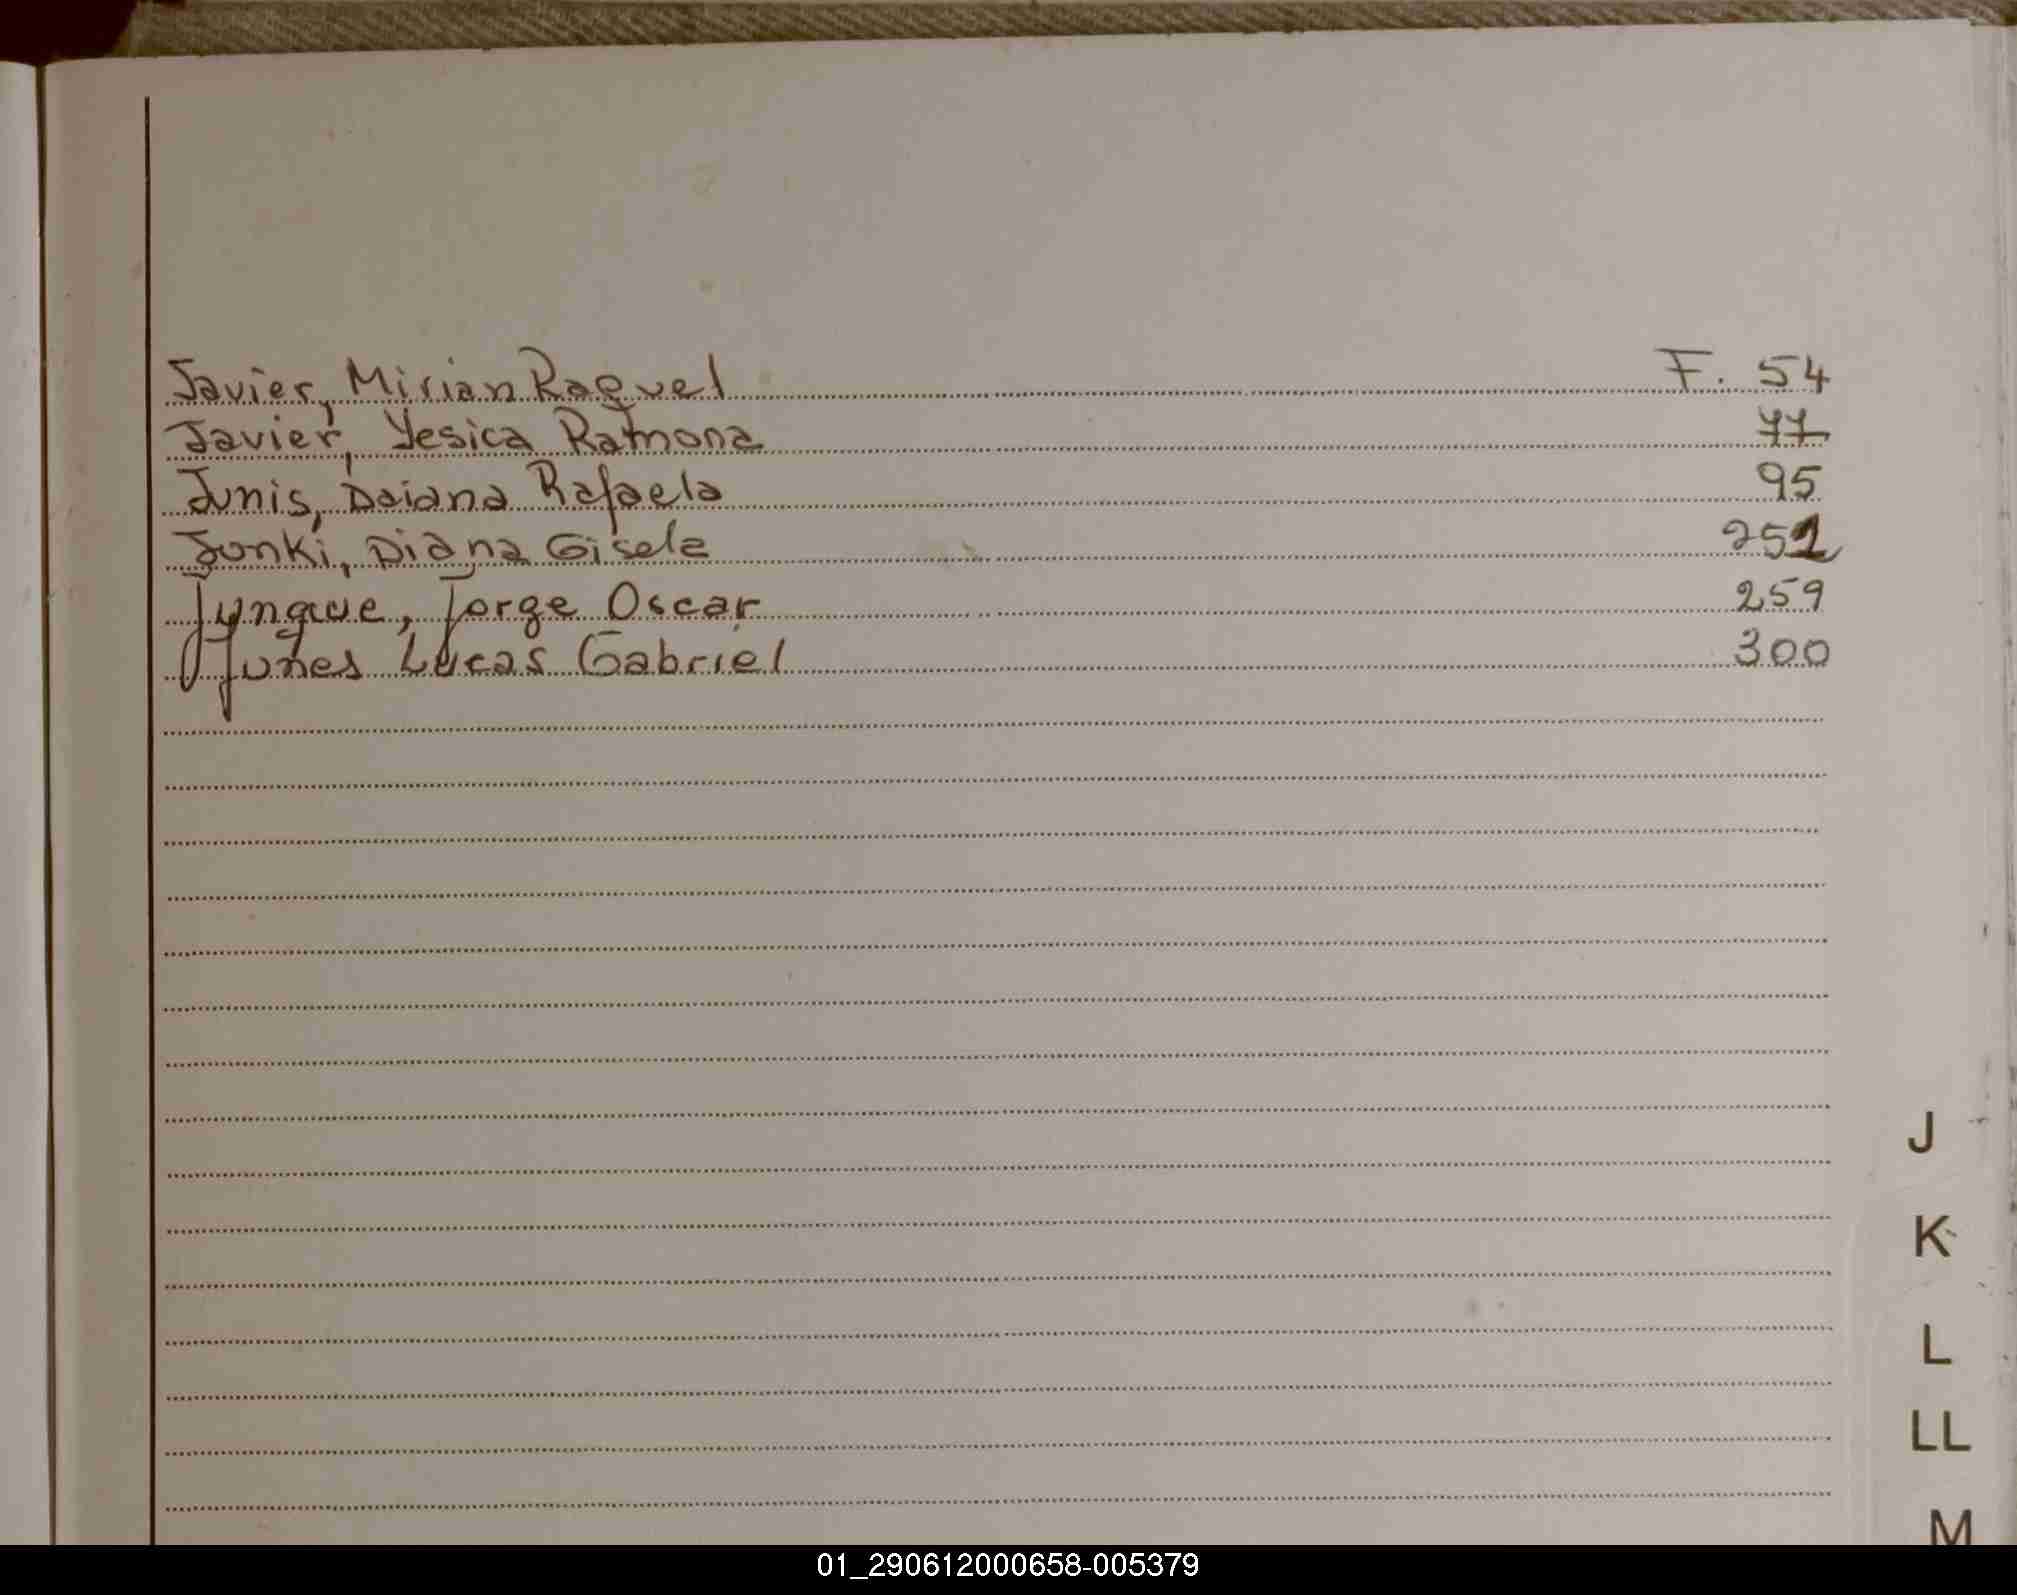 Javier, Mirian Raquel F. 54
Javier, Yesica Ramona 77
Junis, Daiana Rafaela 95
Junki, Diana Gisela 252
Jorge Oscar 259
Junes Lucas Gabriel 300
J
K
L
LL
M
01_290612000658-005379